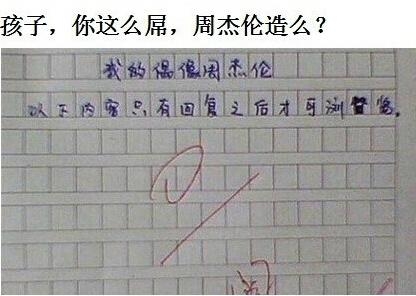 孩子，你这么屌，周杰伦造么？
我的偶像周杰伦
以下内容只有回复之后才可浏览。